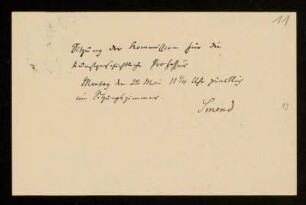 11
Sitzung der Kommission für die
kunstgeschichtliche Professur
Montag den 22 Mai 11¼ Uhr pünktlich
im Sitzungszimmer.
Smend